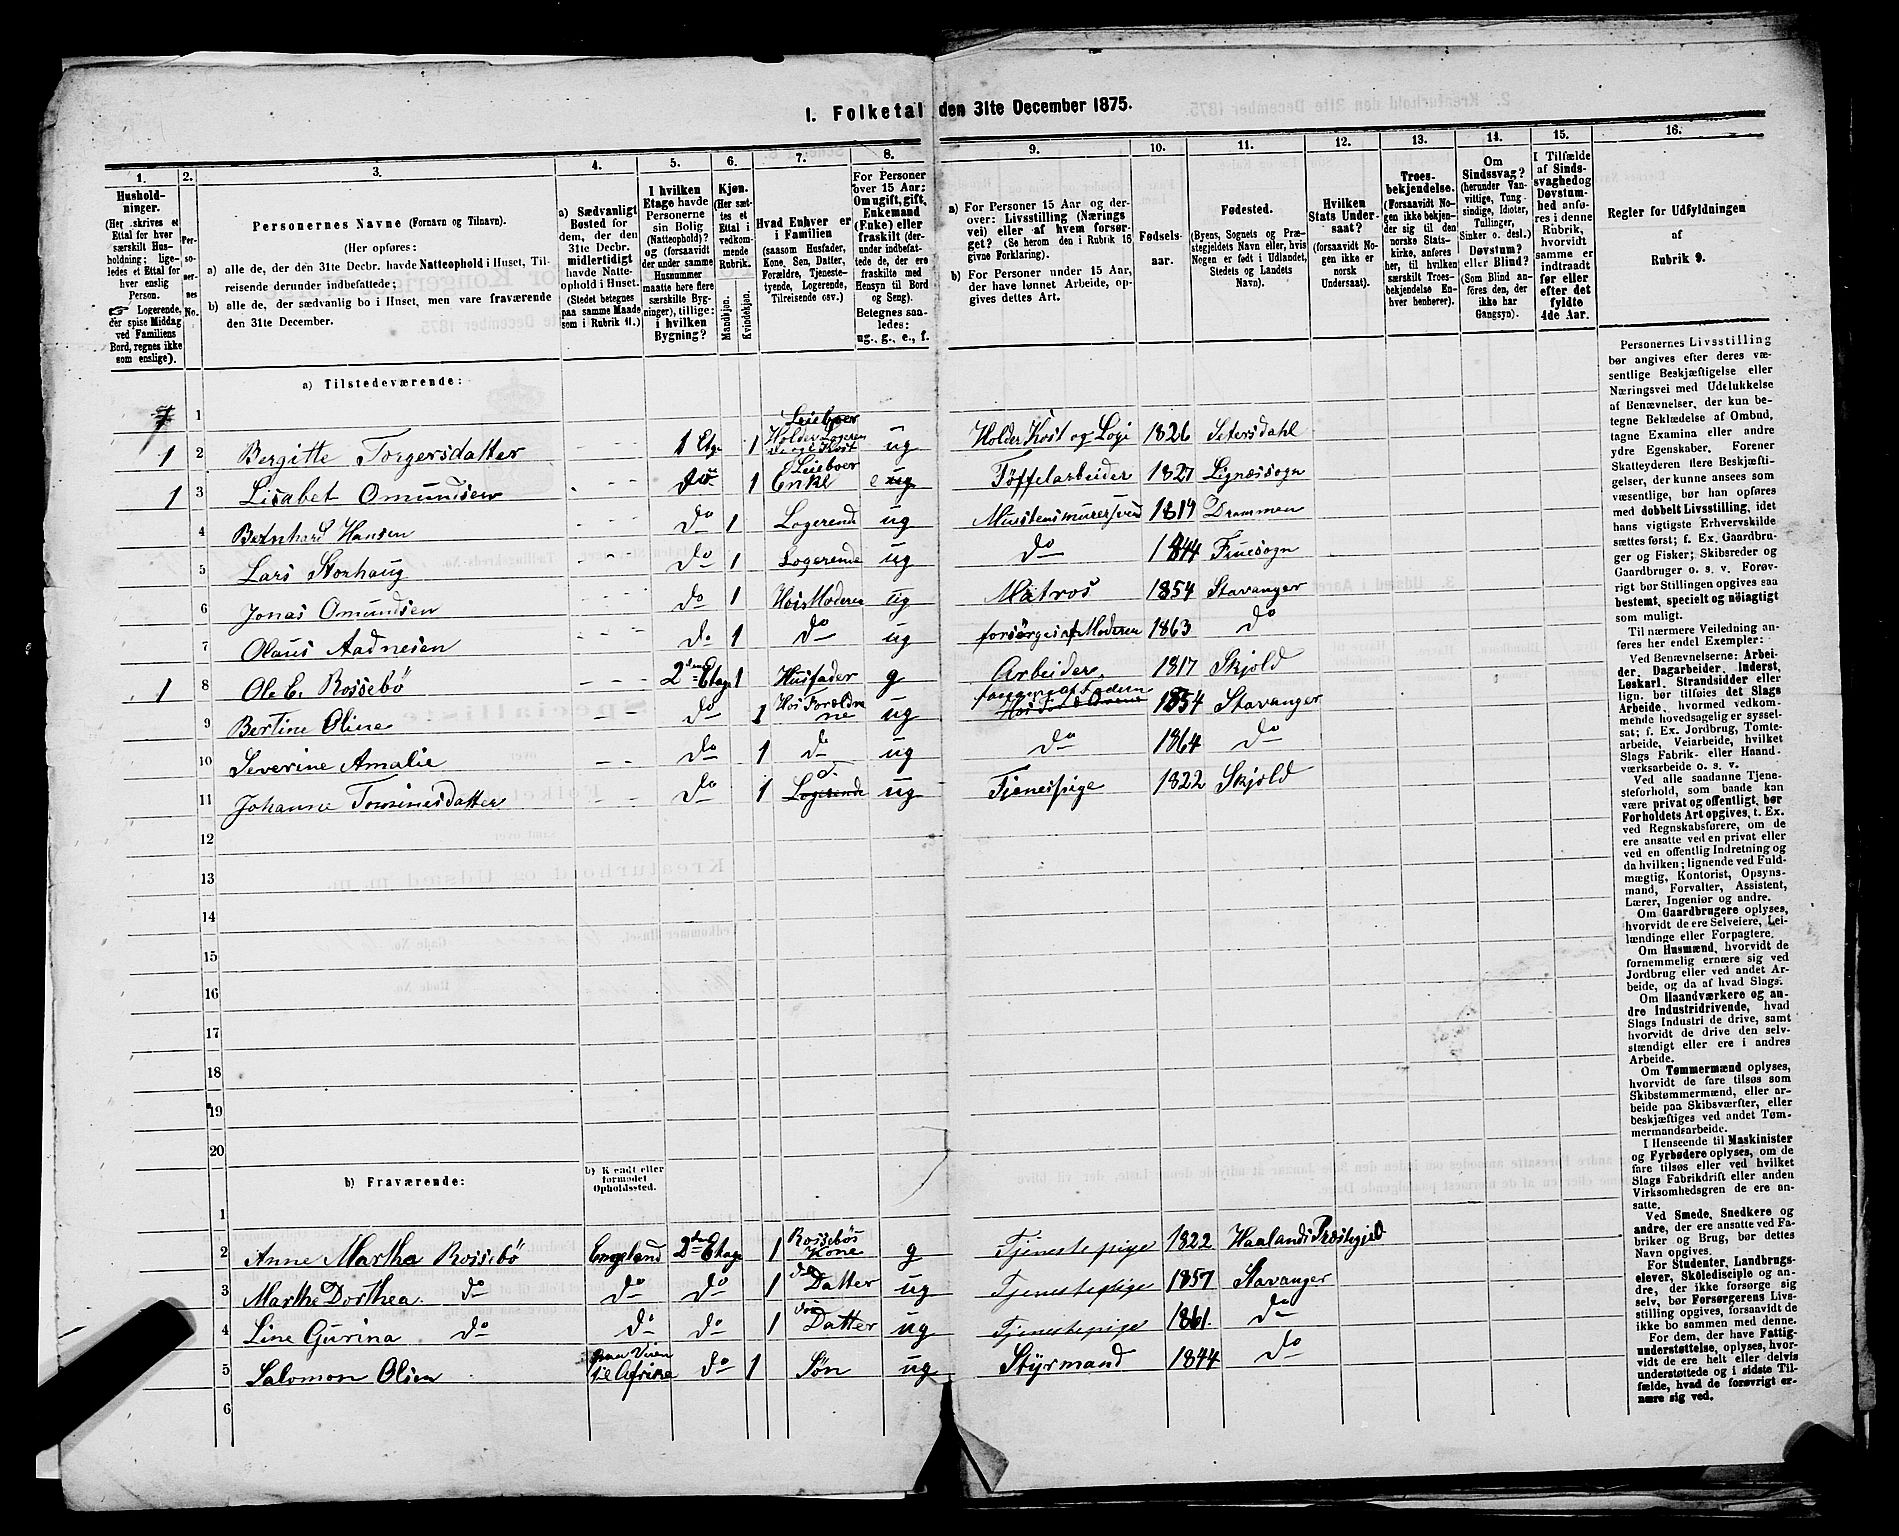 1. Folketal den 31te December 1875.
1. 2. 3. 4. 5. 6. 7. 8. 9. 10. 11. 12. 13. 14. 15. 16.
Husholdninger.
(Her skrives et
Ettal for hver
særskilt Hus-
holdning; lige-
ledes et Ettal for
hver enslig
Person.
☞ Logerende,
der spise Middag
ved Familiens
Bord, regnes ikke
som enslige).
Personernes No.
Personernes Navne (Fornavn og Tilnavn).
(Her opføres:
a) alle de, der den 31te Decbr. havde Natteophold i Huset, Til-
reisende derunder indbefattede;
b) alle de, der sædvanlig bo i Huset, men vare fraværende
den 31te December.
a) Sædvanligt
Bosted for
dem, der den
31te Decbr.
midlertidigt
havde Natte-
ophold i Huset.
(Stedet betegnes
paa samme Maade
som i Rubrik 11.)
I hvilken
Etage havde
Personerne
sin Bolig
(Natteophold)?
og (forsaavidt
der under samme
Husnummer
maatte høre flere
særskilte Byg-
ninger), tillige:
i hvilken
Bygning?
Kjøn.
(Her sæt-
tes et
Ettal i
vedkom-
mende
Rubrik.
Mandkjøn.
Kvindekjøn.
Hvad Enhver er
i Familien
(saasom Husfader,
Kone, Søn, Datter,
Forældre, Tjeneste-
tyende, Logerende,
Tilreisende osv.)
For Personer
over 15 Aar:
Om ugift, gift,
Enkemand
(Enke) eller
fraskilt (der-
under indbefat-
tede de, der ere
fraskilte med
Hensyn til Bord
og Seng).
Betegnes saa-
ledes:
ug., g., e., f.
a) For Personer 15 Aar og der-
over: Livsstilling (Nærings
vei) eller af hvem forsør-
get? (Se herom den i Rubrik 16
givne Forklaring).
b) For Personer under 15 Aar,
der have lønnet Arbeide, op-
gives dettes Art.
Fødsels-
aar.
Fødested.
(Byens, Sognets og Præ-
stegjeldets Navn eller, hvis
Nogen er født i Udlandet,
Stedets og Landets
Navn).
Hvilken
Stats Under-
saat?
(forsaavidt No-
gen ikke er
norsk
Undersaat).
Troes-
bekjendelse.
(Forsaavidt No-
gen ikke bekjen-
der sig til den
norske Stats-
kirke, anføres
her, til hvilken
særskilt Troes-
bekjendelse En-
hver henhører).
Om
Sindssvag?
(herunder Van-
vittige, Tung-
sindige, Idioter,
Tullinger,
Sinker o. desl.)
Døvstum?
eller Blind?
(Som Blind an-
føres den, der
ikke har
Gangsyn).
I Tilfælde
af Sinds-
svaghed og
Døvstum-
hed anfø-
res i denne
Rubrik,
hvorvidt
samme er
indtraadt
før eller
efter det
fyldte
4de Aar.
Regler for Udfyldningen
af
Rubrik 9.
a) Tilstedeværende:
1 Leieboer
1 2 Bergitte Torgersdatter 1 Etge 1 Holder Logeren ug Holder Kost og Logi 1826 Setersdahl
1 3 Lisabet Omundsen do 1 Leieboer Enke e ug Töffelarbeider 1827 Lignæssogn
4 Bernhard Hansen do 1 Logerend ug Murstensmurersvend 1819 Drammen
5 Lars Storhaug do 1 Logerende ug do 1844 Fruesogn
6 Jonas Omundsen do 1 Hos Moderen ug Matros 1854 Stavanger
7 Olaus Aadnesen do 1 do ug forsörges af Moderen 1863 do
1 8 Ole E. Rossebö 2den Etage 1 Husfader g Arbeider 1817 Skjold
9 Bertine Oline do 1 Hos Foreldrene ug 1854 Stavanger
10 Severine Amalie do 1 do ug do 1864 do
11 Johanne Tominesdatter do 1 Logerende ug Tjenespige 1822 Skjold
12
13
14
15
16
17
18
19
20
b) Fraværende: b) Kjendt eller
formodet
Opholdssted.
1
2 Anne Martha Rossebö Engeland 2den Etage 1 Rossebös Kone g Tjenestepige 1822 Haalands Præstegjeld
3 Marthe Dorthea do do do 1 do Datter ug Tjenestepige 1857 Stavanger
4 Line Gurina do do do 1 do Datter ug Tjenestepige 1861. do
5 Salomon Olsen Paa Veien til Afrika do 1 Søn ug Styrmand 1844 do
6
Personernes Livsstilling
bør angives efter deres væ-
sentlige Beskjæftigelse eller
Næringsvei med Udelukkelse
af Benævnelser, der kun be-
tegne Beklædelse af Ombud,
tagne Examina eller andre
ydre Egenskaber. Forener
Skatteyderen flere Beskjæfti-
gelser, der kunne ansees som
væsentlige, bør han opføres
med dobbelt Livsstilling, idet
hans vigtigste Erhvervskilde
sættes først; f. Ex. Gaardbru-
ger og Fisker; Skibsreder og
Gaardbruger o. s. v. Forøv-
rigt bør Stillingen opgives saa
bestemt, specielt og nöiagtigt
som muligt.
Til nærmere Veiledning an-
føres her endel Exempler:
Ved Benævnelserne: Arbei-
der, Dagarbeider, Inderst,
Løskarl, Strandsidder eller
lign. bør tilføies det Slags
Arbeide, hvormed vedkom-
mende hovedsagelig er syssel-
sat; f. Ex. Jordbrug, Tomte-
arbeide, Veiarbeide, hvilket
Slags Fabrik- eller Haand-
værksarbeide o. s. v.
Ved alle saadanne Tjene-
steforhold, som baade kan
være privat og offentligt, bør
Forholdets Art opgives, t. Ex.
ved Regnskabsførere, om de
ere ansatte ved en privat eller
ved en offentlig Indretning og
da hvilken; lignende ved Fuld-
mægtig, Kontorist, Opsyns-
mand, Forvalter, Assistent,
Lærer, Ingeniør og andre.
Om Gaardbrugere oplyses,
hvorvidt de ere Selveiere, Lei-
lændinge eller Forpagtere.
Om Husmænd, hvorvidt de
fornemmelig ernære sig ved
Jordbrug eller ved andet Ar-
beide, og da af hvad Slags.
Om Haandværkere og an-
dre Industridrivende, hvad
Slags Industri de drive, samt
hvorvidt de drive den selv-
stændigt eller ere i andres
Arbeide.
Om Tømmermænd oplyses,
hvorvidt de fare tilsøs som
Skibstømmermænd, eller ar-
beide paa Skibsværfter, eller
beskjæftiges ved andet Tøm-
mermandsarbeide.
I Henseende til Maskinister
og Fyrbødere oplyses, om de
fare tilsøs eller ved hvilket
Slags Fabrikdrift eller anden
Virksomhedsgren de ere an-
satte.
Ved Smede, Snedkere og
andre, der ere ansatte ved Fa-
briker og Brug, bør dettes
Navn opgives.
For Studenter, Landbrugs-
elever, Skoledisciple og an-
dre, der ikke forsørge sig
selv, bør Forsørgerens Livs-
stilling opgives, forsaavidt de
ikke bo sammen med denne.
For dem, der have Fattig-
understøttelse, oplyses, hvor-
vidt de ere helt eller delvis
understøttede og i sidste Til-
fælde, hvad de forøvrigt er-
nære sig ved.